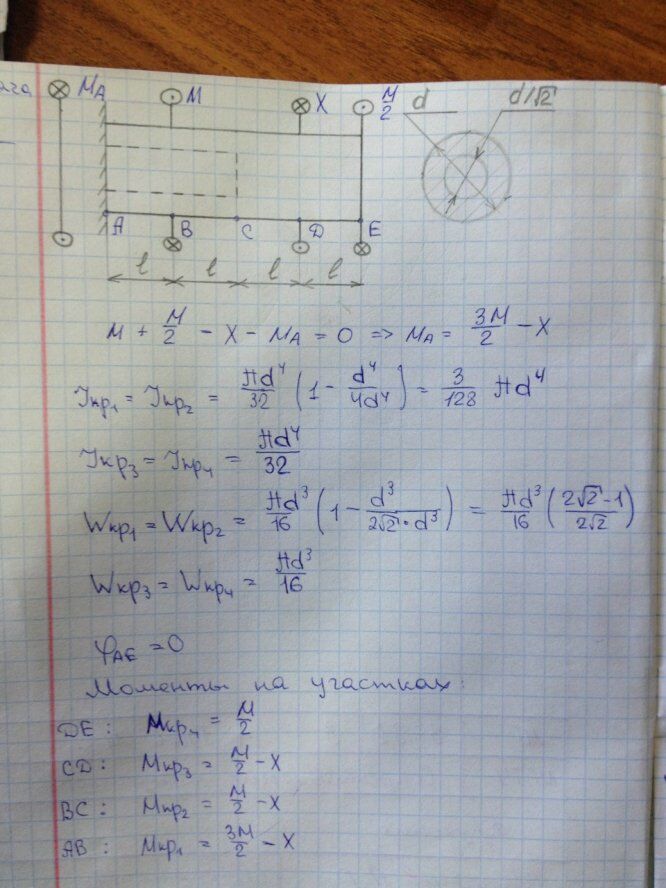 M_A M X M/2 d d/√2
A B C D E
l l l l
M + M/2 - X - M_A = 0 => M_A = 3M/2 - X
Jкр₁ = Jкр₂ = πd⁴/32 (1 - d⁴/4d⁴) = 3/128 πd⁴
Jкр₃ = Jкр₄ = πd⁴/32
Wкр₁ = Wкр₂ = πd³/16 (1 - d³/2√2·d³) = πd³/16 (2√2-1/2√2)
Wкр₃ = Wкр₄ = πd³/16
φ_AE = 0
Моменты на участках:
DE: Mкр₄ = M/2
CD: Mкр₃ = M/2 - X
BC: Mкр₂ = M/2 - X
AB: Mкр₁ = 3M/2 - X